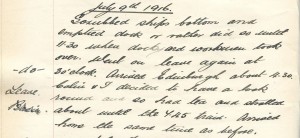 July 9th 1916.
Scrubbed ships bottom and
emptied dock or rather did so until
11.30 when dockyard workmen took
over. Went on leave again at
-do- 3 o'clock. Arrived Edinburgh about 4.30.
Leave. Colin & I decided to have a look
round and so had tea and strolled
about until the 9.45 train. Arrived
home the same time as before.